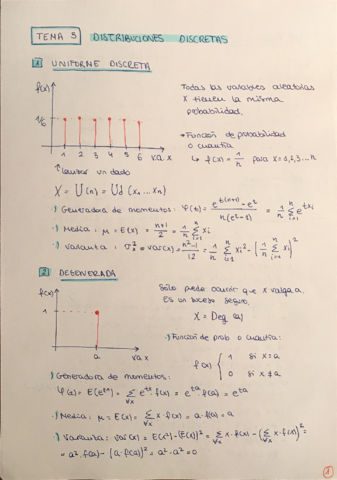 TEMA 5 DISTRIBUCIONES DISCRETAS
1 UNIFORME DISCRETA
f(x)
Todas las variables aleatorias
X tienen la misma
probabilidad.
→ Función de probabilidad
o cuantía
1/6
↳ f(x) = 1/n para x=1,2,3...n
1 2 3 4 5 6 v.a x
↑ Lanzar un dado
X = U(n) = Ud(x1...xn)
·) Generadora de momentos: φ(t) = e^t(n+1) - e^t / n(e^t-1) = 1/n Σ e^txi
·) Media: μ = E(x) = n+1/2 = 1/n Σ xi
·) Varianza: σ²x = var(x) = n²-1/12 = 1/n Σ xi² - (1/n Σ xi)²
2 DEGENERADA
f(x)
Sólo puede ocurrir que X valga a.
Es un suceso seguro.
1
X = Deg (a)
·) Función de prob o cuantía:
a v.a x
f(x) { 1 si x=a
0 si x≠a
·) Generadora de momentos:
φ(t) = E(e^tx) = Σ∀x e^tx · f(x) = e^ta · f(a) = e^ta
·) Media: μ = E(x) = Σ∀x x·f(x) = a·f(a) = a
·) Varianza: var(x) = E(x²) - (E(x))² = Σ∀x x·f(x) - (Σ∀x x·f(x))² =
= a²·f(a) - (a·f(a))² = a²-a² = 0
1